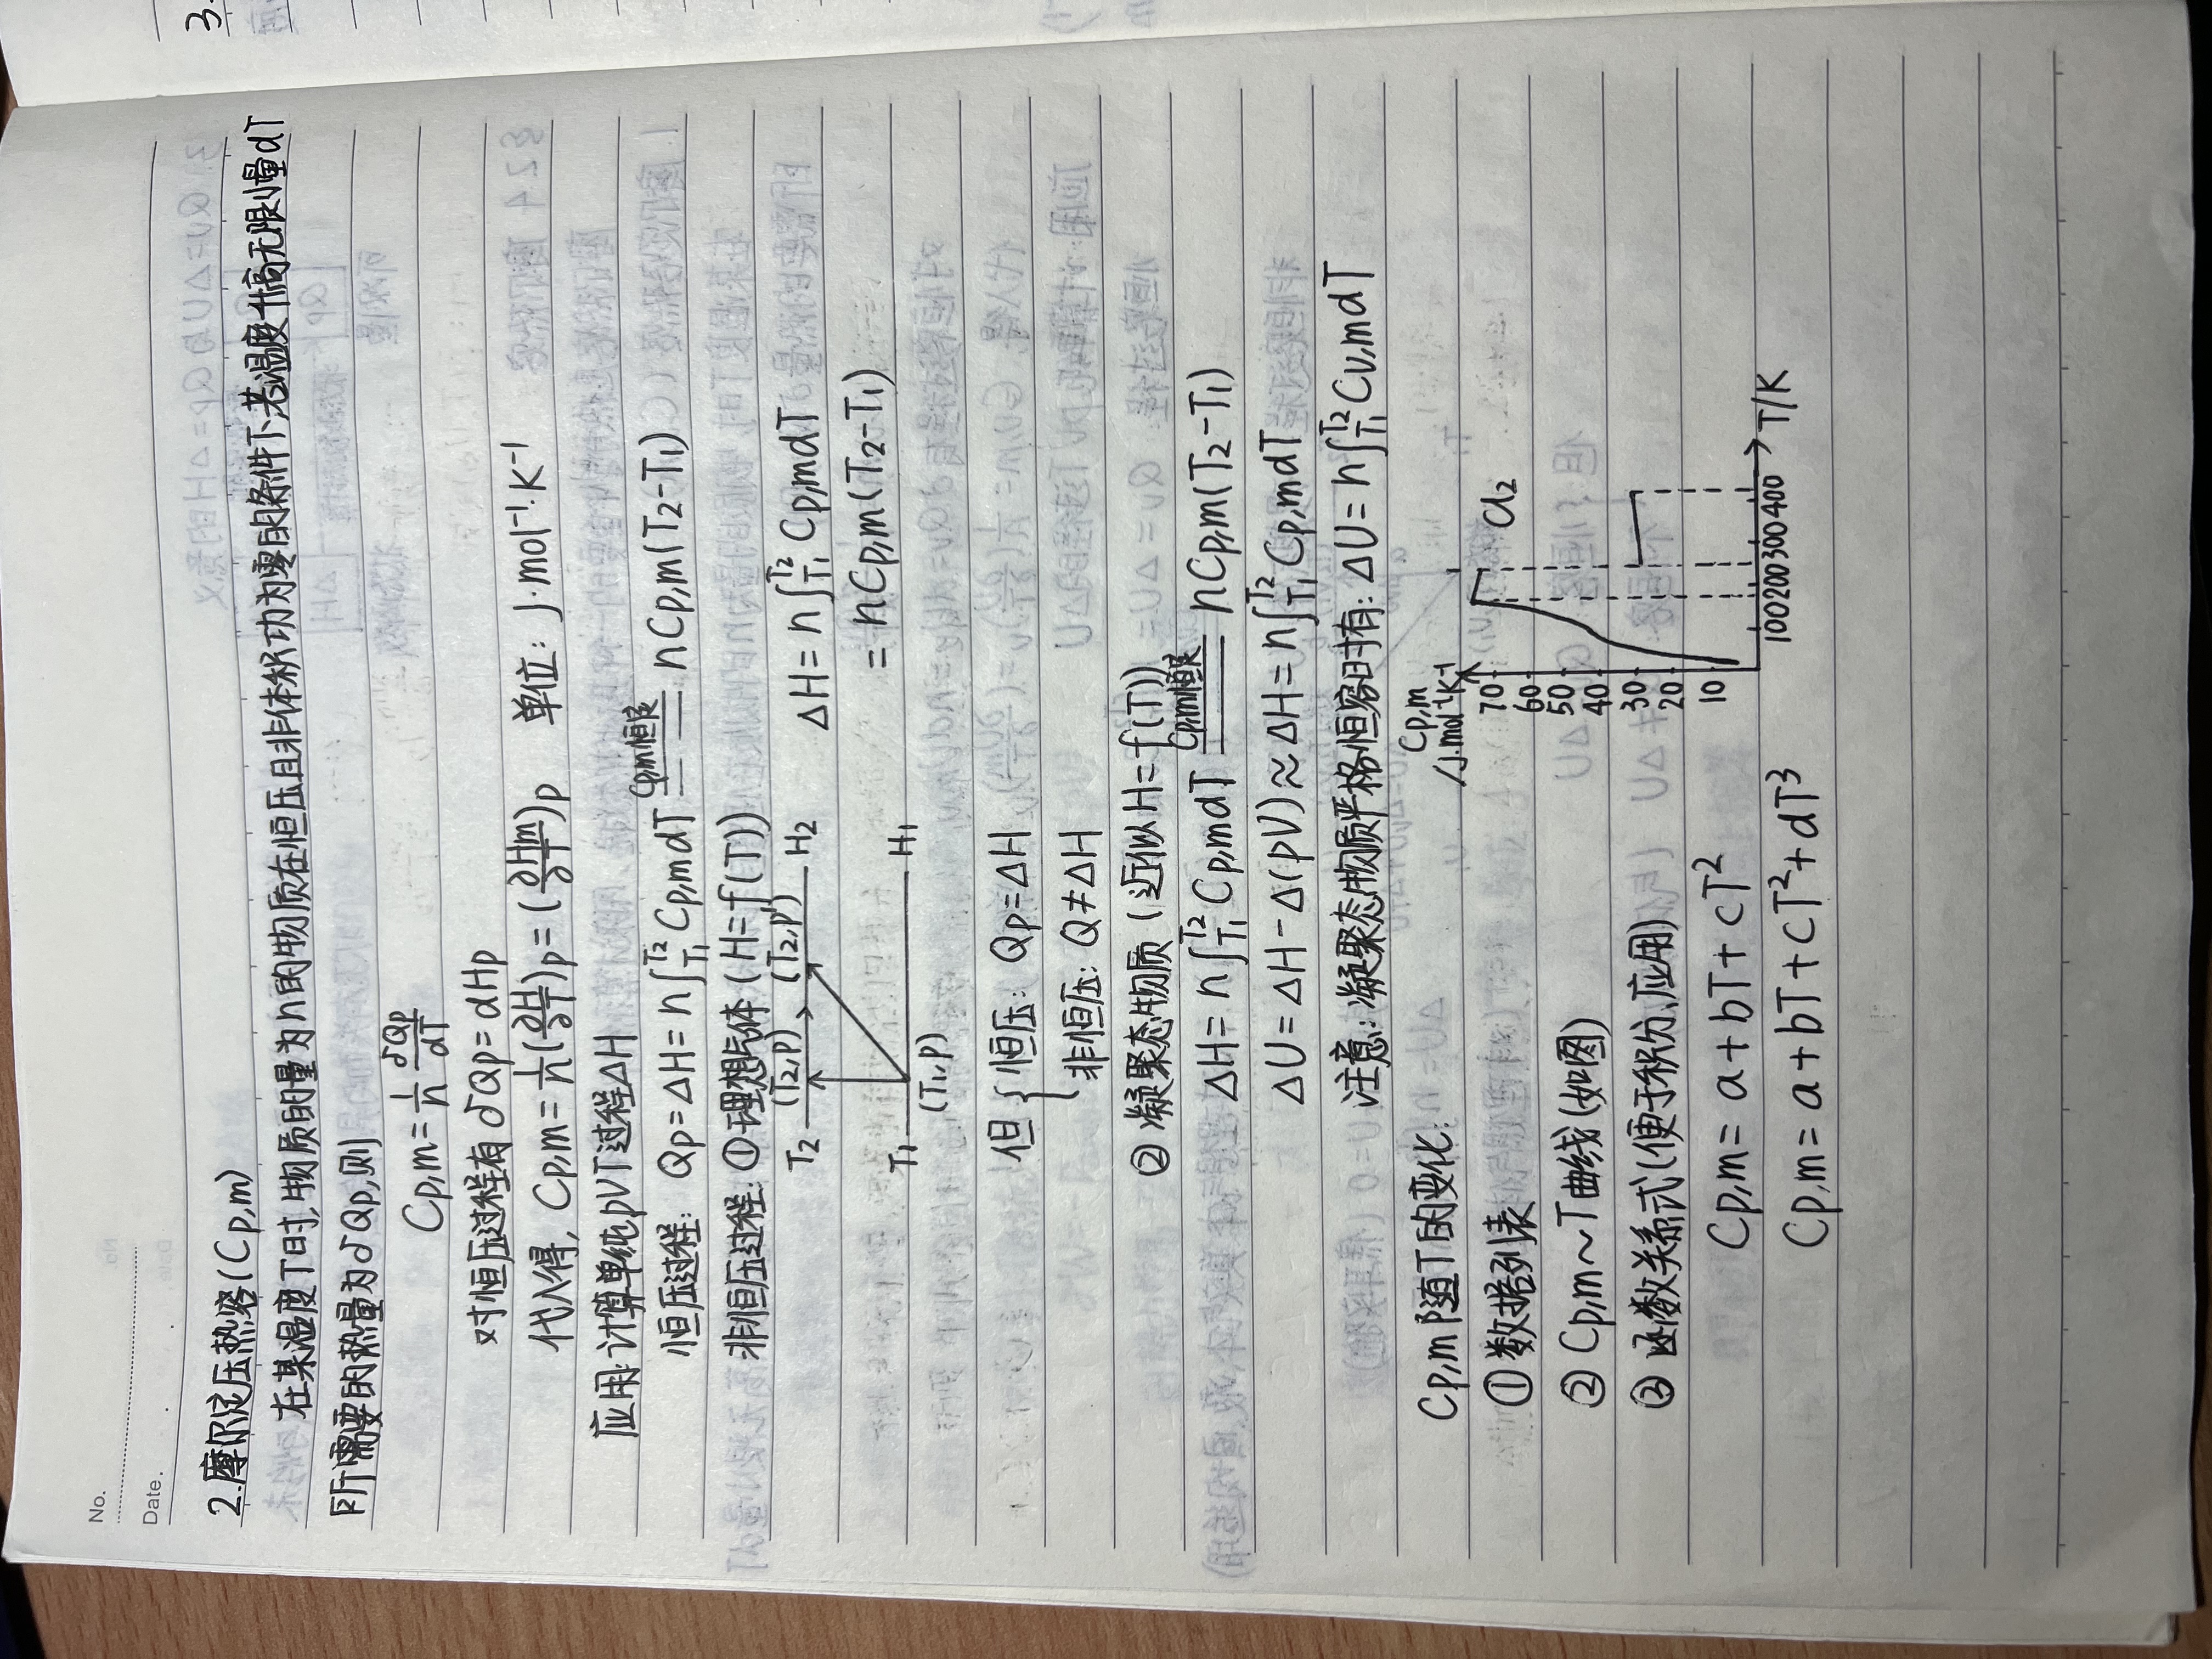 No.
Date.
2.摩尔定压热容(Cp,m)
在某温度T时,物质的量为n的物质在恒压且非体积功为零的条件下,若温度升高无限小量dT
所需要的热量为δQp,则
Cp,m=1/n δQp/dT
对恒压过程有 δQp=dHp
代入得, Cp,m=1/n(∂H/∂T)p=(∂Hm/∂T)p 单位: J·mol⁻¹·K⁻¹
应用:计算单纯pVT过程△H
恒压过程: Qp=△H=n∫T1T2 Cp,mdT Cp,m恒定 == nCp,m(T2-T1)
非恒压过程: ①理想气体(H=f(T))
T2 (T2,p) (T2,p') H2
T1 H1
(T1,p)
△H=n∫T1T2 Cp,mdT
=nCp,m(T2-T1)
但{恒压: Qp=△H
非恒压: Q≠△H
②凝聚态物质(近似H=f(T))
△H=n∫T1T2 Cp,mdT Cp,m恒定 == nCp,m(T2-T1)
△U=△H-△(pV)≈△H=n∫T1T2 Cp,mdT
注意:凝聚态物质严格恒容时有: △U=n∫T1T2 CV,mdT
Cp,m随T的变化:
①数据列表
②Cp,m~T曲线(如图)
③函数关系式(便于积分、应用)
Cp,m=a+bT+cT²
Cp,m=a+bT+cT²+dT³
Cp,m
/J·mol⁻¹K⁻¹
70
60
50
40
30
20
10
Cl2
100 200 300 400 T/K
3.